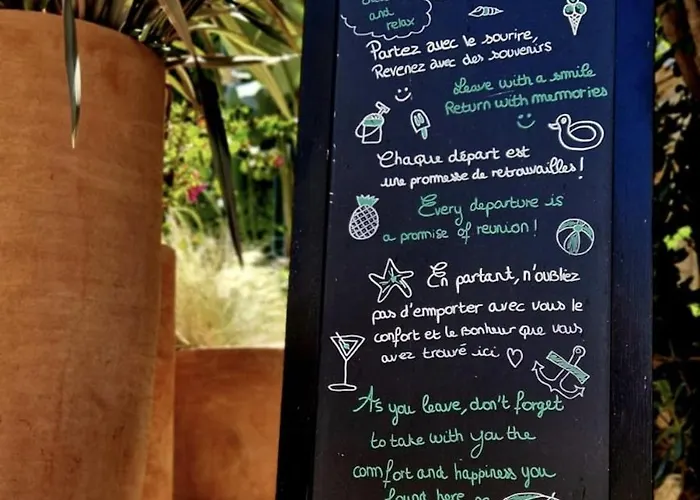 and
relax
Partez avec le sourire,
Revenez avec des souvenirs
Leave with a smile
Return with memories
Chaque départ est
une promesse de retrouvailles!
Every departure is
a promise of reunion!
En partant, n'oubliez
pas d'emporter avec vous le
confort et le Bonheur que vous
avez trouvé ici
As you leave, don't forget
to take with you the
comfort and happiness you
found here